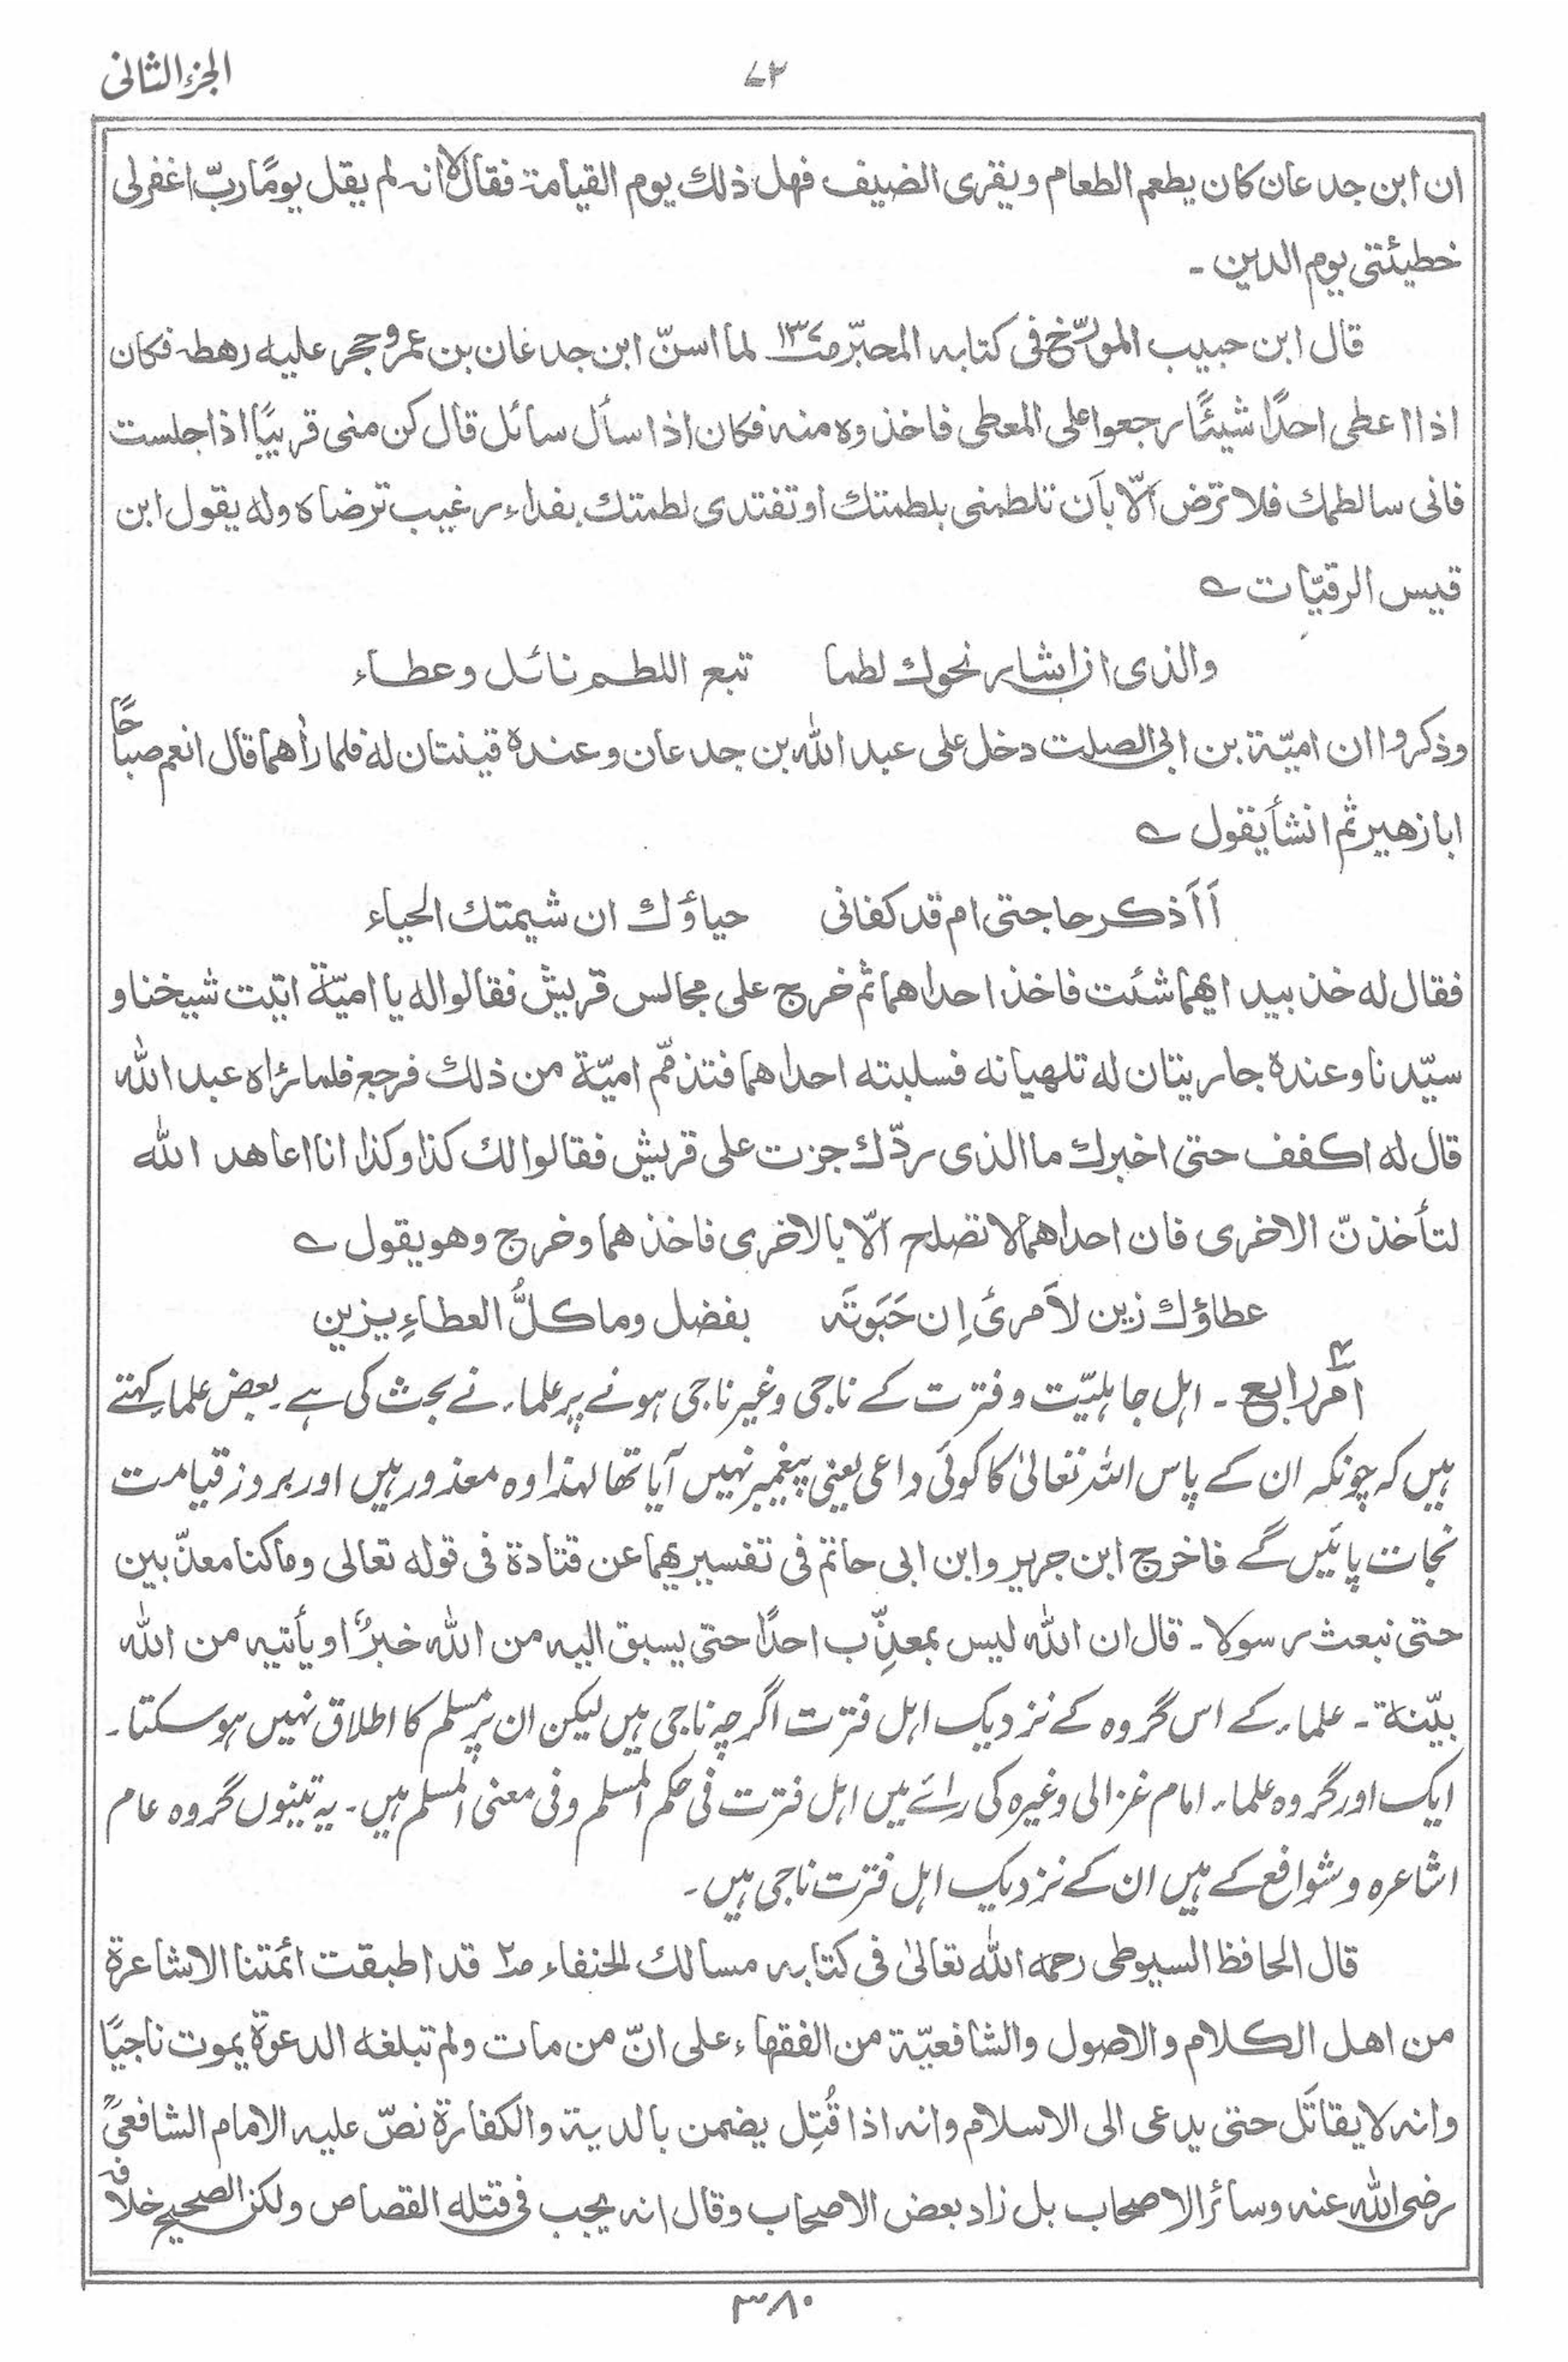 الجزء الثانی
۷۳
ان ابن جدعان کان یطعم الطعام ویقری الضیف فهل ذلك یوم القیامة فقال لا انه لم یقل یومًا ربّ اغفر لی
خطیئتی یوم الدین ـ
قال ابن حبیب المورّخ فی کتابه المحبّر ص۱۳۷ لما اسنّ ابن جدعان بن عمرو حجر علیه رهطه فکان
اذا اعطی احدًا شیئًا رجعوا علی المعطی فاخذوه منه فکان اذا سأل سائل قال کن منی قریبًا اذا جلست
فانی سالطمك فلا ترض الّا بأن تلطمنی بلطمتك او تفتدی لطمتك بفداء رغیب ترضاه وله یقول ابن
قیس الرقیّات ے
والذی ان اشار نحوك لطما تبع اللطم نائل وعطاء
وذکروا ان امیّة بن ابی الصلت دخل علی عبد الله بن جدعان وعنده قینتان له فلما رأهما قال انعم صباحًا
ابا زهیر ثم انشأ یقول ے
أ أذکر حاجتی ام قد کفانی حیاؤك ان شیمتك الحیاء
فقال له خذ بید ایهما شئت فاخذ احداهما ثم خرج علی مجالس قریش فقالوا له یا امیّة اتیت شیخنا و
سیّدنا وعنده جاریتان له تلهیانه فسلبته احداهما فتذمّم امیّة من ذلك فرجع فلما رٰاه عبد الله
قال له اکفف حتی اخبرك ما الذی ردّك جزت علی قریش فقالوا لك کذا وکذا انا اعاهد الله
لتأخذنّ الاخری فان احداهما لا تصلح الّا بالاخری فاخذهما وخرج وهو یقول ے
عطاؤك زین لأمرئ اِن حَبَوتَه بفضل وما کلُّ العطاءِ یزین
امر رابع ۴ ـ اہل جاہلیّت و فترت کے ناجی وغیر ناجی ہونے پر علماء نے بحث کی ہے۔ بعض علما کہتے
ہیں کہ چونکہ ان کے پاس اللہ تعالیٰ کا کوئی داعی یعنی پیغمبر نہیں آیا تھا لہذا وہ معذور ہیں اور بروز قیامت
نجات پائیں گے فاخرج ابن جریر وابن ابی حاتم فی تفسیریهما عن قتادة فی قوله تعالی وما کنا معذّبین
حتی نبعث رسولا ـ قال ان الله لیس بمعذِّب احدًا حتی یسبق الیه من الله خبرٌ او یأتیه من الله
بیّنة ـ علماء کے اس گروہ کے نزدیک اہل فترت اگرچہ ناجی ہیں لیکن ان پر مسلم کا اطلاق نہیں ہوسکتا۔
ایک اور گروہ علماء امام غزالی وغیرہ کی رائے میں اہل فترت فی حکم المسلم وفی معنی المسلم ہیں۔ یہ تینوں گروہ عام
اشاعرہ و شوافع کے ہیں ان کے نزدیک اہل فترت ناجی ہیں۔
قال الحافظ السیوطی رحمه الله تعالیٰ فی کتابه مسالك الحنفاء ص۲ قد اطبقت ائمتنا الاشاعرة
من اهل الکلام والاصول والشافعیّة من الفقهاء علی انّ من مات ولم تبلغه الدعوة یموت ناجیًا
وانه لا یقاتَل حتی یدعی الی الاسلام وانه اذا قُتِل یضمن بالدیة والکفارة نصّ علیه الامام الشافعیؒ
رضی الله عنه وسائر الاصحاب بل زاد بعض الاصحاب وقال انه یجب فی قتله القصاص ولکن الصحیح خلافه